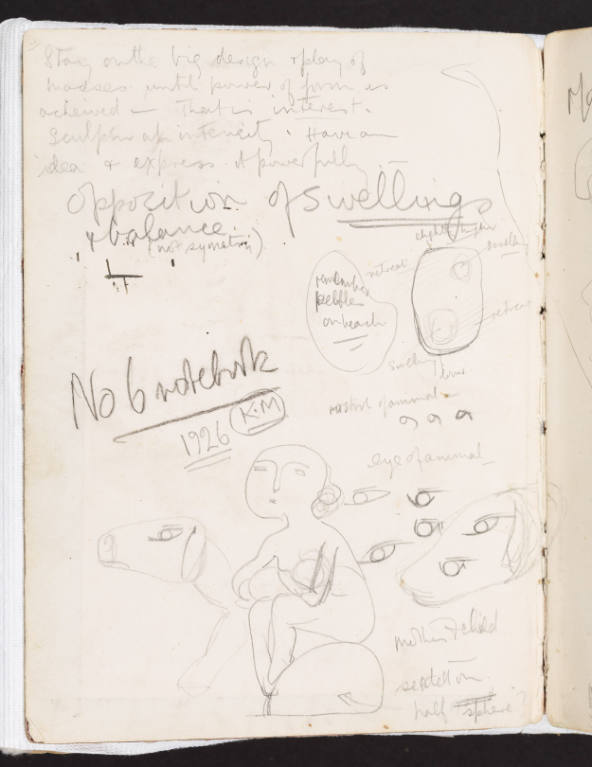 Stay on the big design & play of
masses until power of form is
acheived — That is interest.
Sculptural intensity. Have an
idea & express it powerfully —
Opposition of swellings
& balance.
(not symetry)
remember
pebbles
on beach
retreat
slight higher
swelling
retreat
swelling
lower
No 6 notebook
1926 K.M
nostril of animal
eye of animal
mother & child
seated on
half sphere?